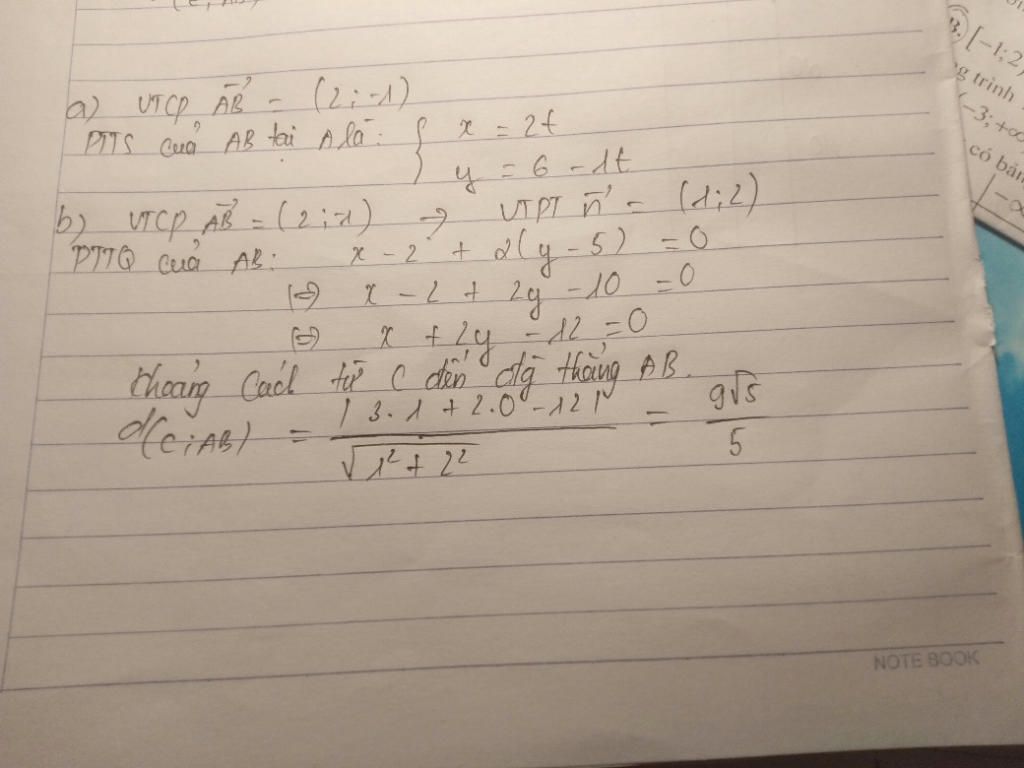 (C; AB)
a) VTCP \vec{AB} = (2; -1)
PTTS của AB tại A là: { x = 2t
y = 6 - 1t
b) VTCP \vec{AB} = (2; -1) → VTPT \vec{n} = (1; 2)
PTTQ của AB: x - 2 + 2(y - 5) = 0
(=) x - 2 + 2y - 10 = 0
(=) x + 2y - 12 = 0
Khoảng Cách từ C đến đtg thẳng AB.
d(C; AB) = |3.1 + 2.0 - 12| / √(1² + 2²) = 9√5 / 5
NOTE BOOK
B. [-1; 2)
g trình
-3; +∞
có bản
-∞